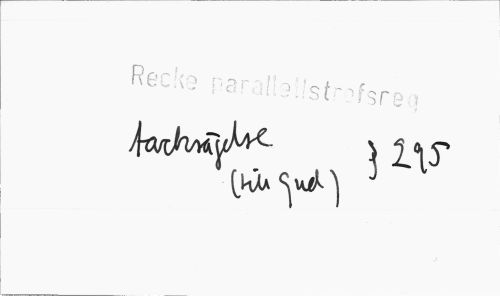 Recke parallellstrofsreg
tacksägelse
(till Gud) } 295